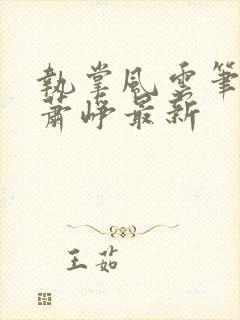 執掌風雲筆
蕭崢最新
王茹